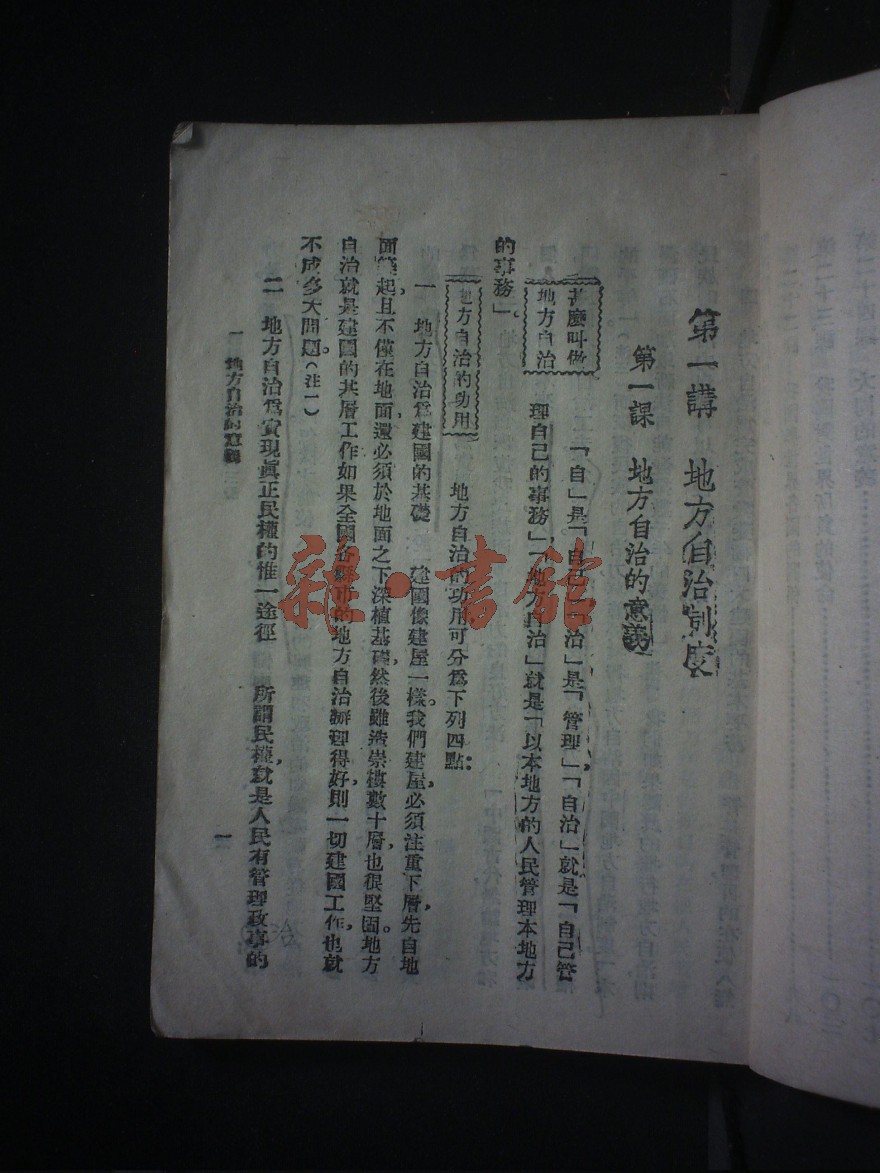 第一講　地方自治制度
第一課　地方自治的意義
甚麼叫做
地方自治
「自」是「自己」「治」是「管理」「自治」就是「自己管
理自己的事務」，「地方自治」就是「以本地方的人民管理本地方
的事務」。
地方自治的功用
地方自治的功用，可分爲下列四點：
一　地方自治爲建國的基礎　建國像建屋一樣。我們建屋必須注重下層，先自地
面築起，且不僅在地面，還必須於地面之下深植基礎，然後雖造崇樓數十層，也很堅固。地方
自治就是建國的基層工作，如果全國各縣市的地方自治辦理得好，則一切建國工作，也就
不成多大問題。（注一）
二　地方自治爲實現眞正民權的惟一途徑　所謂民權，就是人民有管理政事的
一　地方自治的意義
一
治
雜·書館